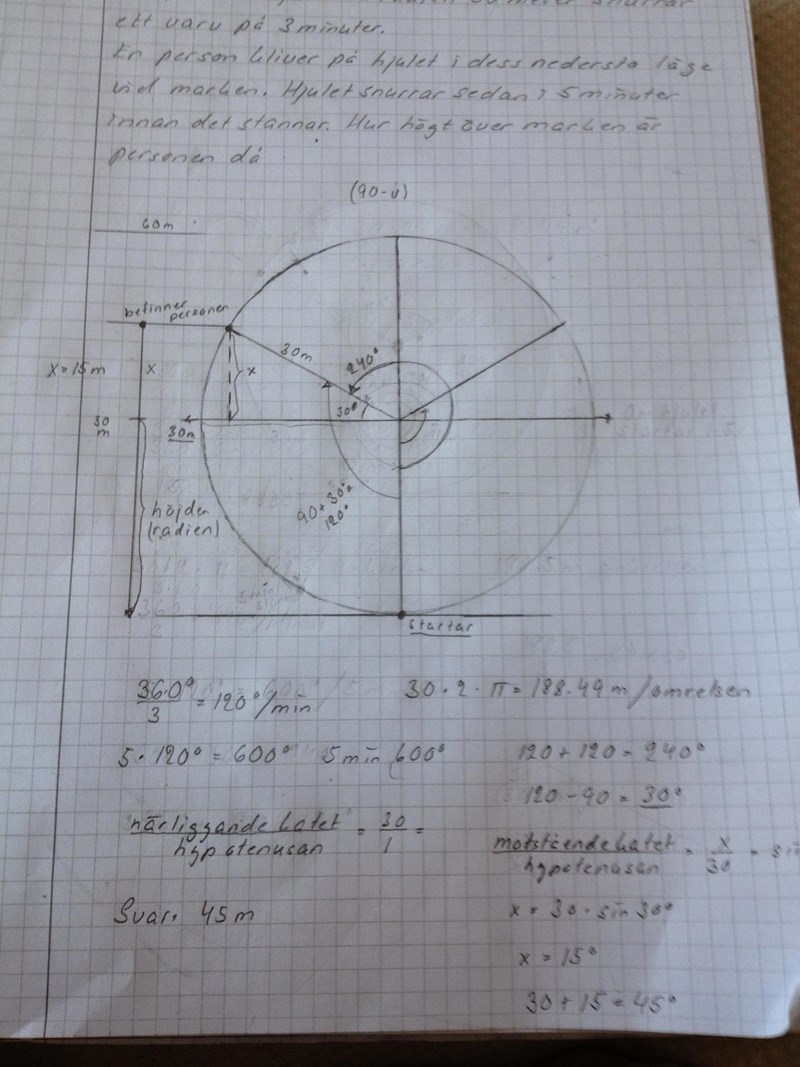 meter snurrar
ett varv på 3 minuter.
En person kliver på hjulet i dess nedersta läge
vid marken. Hjulet snurrar sedan i 5 minuter
innan det stannar. Hur högt över marken är
personen då
(90-v)
60m
befinner personen
30m
240°
x = 15 m
x
x
30°
30 m
30m
höjden
(radien)
90+30°=
120°
startar
360°/3 = 120°/min
30 · 2 · π = 188.49 m/omretsen
5 · 120° = 600° 5 min 600°
120 + 120 = 240°
120 - 90 = 30°
närliggande katet/hypotenusan = 30/1 =
motstående katet/hypotenusan = x/30 =
Svar. 45 m
x = 30 · sin 30°
x = 15°
30 + 15 = 45°